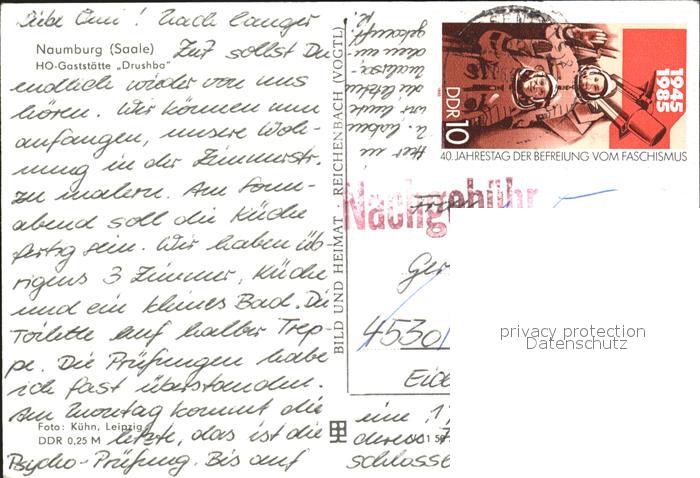 Liebe Omi! Nach langer
Naumburg (Saale) Zeit sollst Du
HO-Gaststätte „Drushba"
endlich wieder von uns
hören. Wir können nun
anfangen, unsere Woh-
nung in der Zimmerstr.
zu malern. Am Sonn-
abend soll die Küche
fertig sein. Wir haben üb-
rigens 3 Zimmer, Küche
und ein kleines Bad. Die
Toilette auf halber Trep-
pe. Die Prüfungen habe
ich fast überstanden.
Am Montag kommt die
Foto: Kühn, Leipzig
letzte, das ist die
DDR 0,25 M
Psycho-Prüfung. Bis auf
BILD UND HEIMAT REICHENBACH (VOGTL)
eine, 1
deren
schlosse
Hier in
haben
wir heute
die letzten
gekauft
DDR 10
1945
1985
40. JAHRESTAG DER BEFREIUNG VOM FASCHISMUS
Nachgebühr
Ger
4530
Eibe
privacy protection
Datenschutz